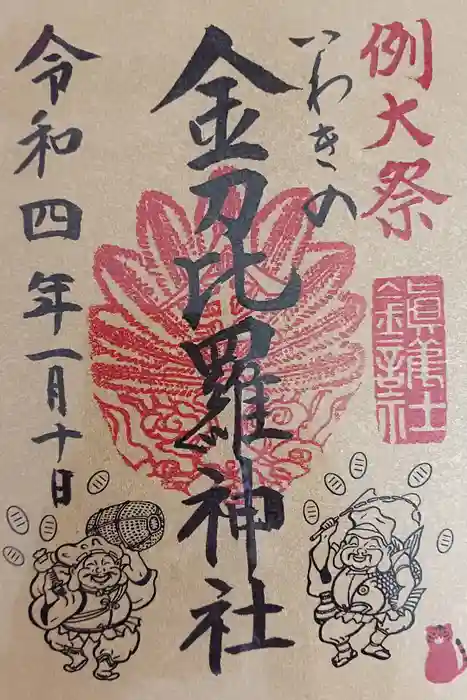 例大祭
鎮護社
いわきの
金刀比羅神社
令和四年一月十日